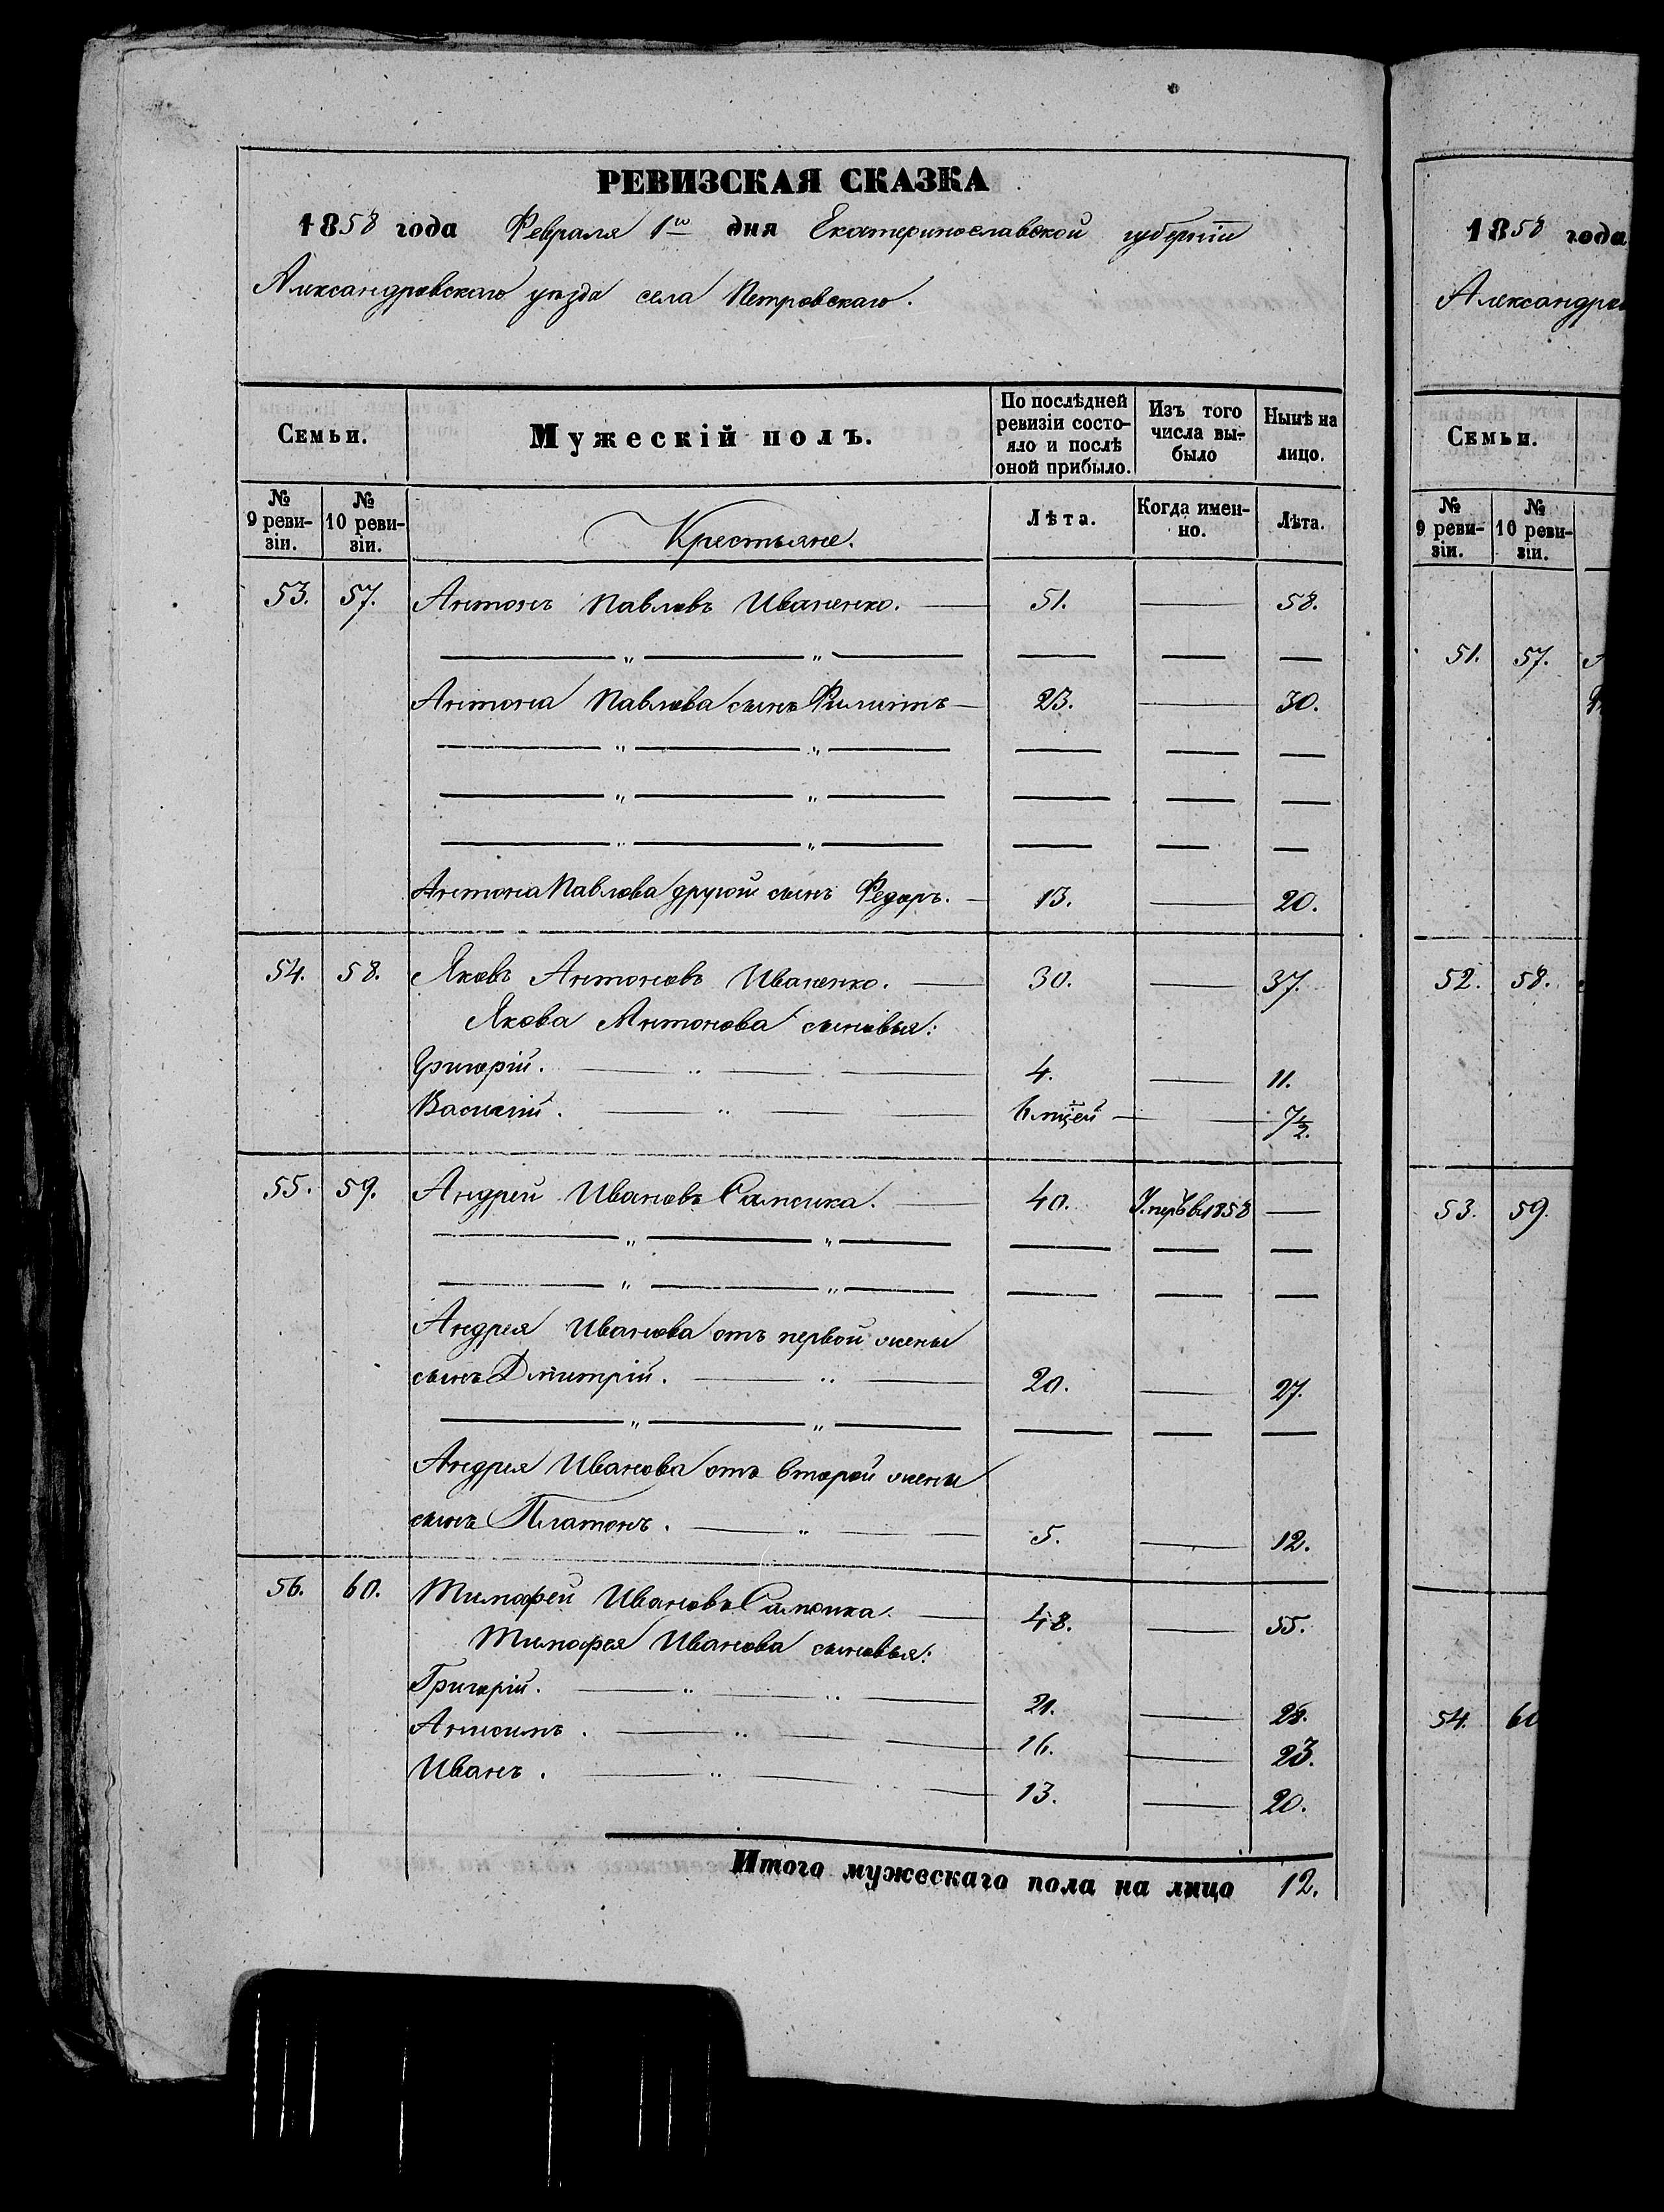 РЕВИЗСКАЯ СКАЗКА
1858 года Февраля 1го дня Екатеринославской губернiи
Александровскаго уѣзда села Петровскаго.
Семьи. Мужескiй полъ. По послѣдней ревизiи состояло и послѣ оной прибыло. Изъ того числа выбыло Нынѣ на лицо.
№ 9 ревизiи. № 10 ревизiи. Крестьяне. Лѣта. Когда именно. Лѣта.
53. 57. Антонъ Павловъ Иваненко. — 51. — 58.
— „ — „ — — — —
Антона Павлова сынъ Филипъ — 23. — 30.
— „ — „ — — — —
— „ — „ — — — —
— „ — „ — — — —
Антона Павлова другой сынъ Федоръ. — 13. — 20.
54. 58. Яковъ Антоновъ Иваненко. — 30. — 37.
Якова Антонова сыновья:
Григорiй. — „ — — 4. — 11.
Василiй. — „ — — 6 мцей — 7½.
55. 59. Андрей Ивановъ Самсика. — 40. 1858 —
— „ — „ — — — —
— „ — „ — — — —
Андрея Иванова отъ первой жены
сынъ Дмитрiй. — „ — 20. — 27.
— „ — „ — — — —
Андрея Иванова отъ второй жены
сынъ Платонъ. — „ — — 5. — 12.
56. 60. Тимофей Ивановъ — 48. — 55.
Тимофея Иванова сыновья:
Григорiй. — „ — „ — 21. — 28.
Анисимъ. — „ — — 16. — 23.
Иванъ. — „ — — 13. — 20.
Итого мужескаго пола на лицо 12.
1858 года
Александров
Семьи.
№ 9 ревизiи. № 10 ревизiи.
51. 57.
52. 58.
53. 59.
54. 60